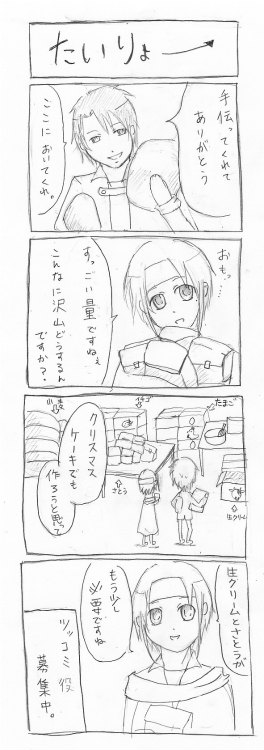 たいりょー
手伝ってくれて
ありがとう
ここに
おいてくれ。
おもっ…
……
すっごい量ですねぇ
こんなに沢山どうするん
ですか?
たまご
いちご
小麦
さとう
生クリーム
クリスマス
ケーキでも
作ろうと思って
生クリームとさとうが
もう少し
必要ですね
ツッコミ役
募集中。